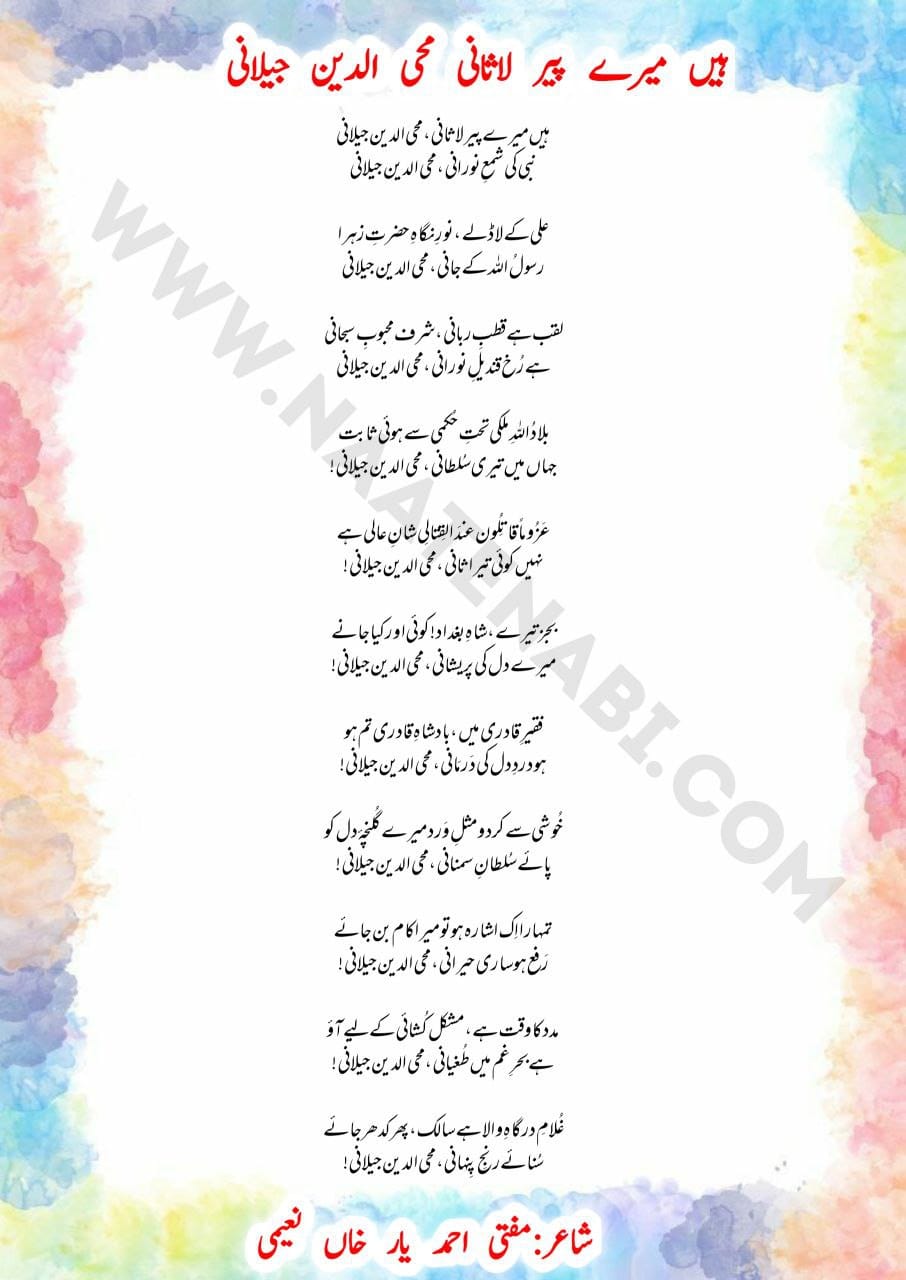 ہیں میرے پیر لاثانی محی الدین جیلانی
ہیں میرے پیر لاثانی، محی الدین جیلانی
نبی کی شمعِ نورانی، محی الدین جیلانی
علی کے لاڈلے، نورِ نگاہِ حضرتِ زہرا
رسولُ اللہ کے جانی، محی الدین جیلانی
لقب ہے قطبِ ربانی، شرف محبوبِ سبحانی
ہے رُخ قندیلِ نورانی، محی الدین جیلانی
بلادُ اللہِ ملکی تحتِ حُکمی سے ہوئی ثابت
جہاں میں تیری سُلطانی، محی الدین جیلانی!
عَزُوماً قاتلُون عندَ القِتالِی شانِ عالی ہے
نہیں کوئی تیرا ثانی، محی الدین جیلانی!
بجز تیرے، شاہِ بغداد! کوئی اور کیا جانے
میرے دل کی پریشانی، محی الدین جیلانی!
فقیرِ قادری میں، بادشاہِ قادری تم ہو
ہو دردِ دل کی دَرمَانی، محی الدین جیلانی!
خُوشی سے کردو مثلِ وَرد میرے گُلنچۂ دل کو
پائے سُلطانِ سمنانی، محی الدین جیلانی!
تمہارا اِک اشارہ ہو تو میرا کام بن جائے
رَفع ہو ساری حیرانی، محی الدین جیلانی!
مدد کا وقت ہے، مشکل کُشائی کے لیے آؤ
ہے بحرِ غم میں طُغیانی، محی الدین جیلانی!
غُلامِ درگاہِ والا ہے سالک، پھر کدھر جائے
سُنائے رنجِ پِنہانی، محی الدین جیلانی!
شاعر: مفتی احمد یار خاں نعیمی
WWW.NAATENABI.COM